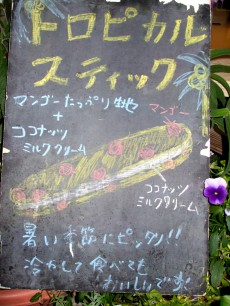 トロピカル
スティック
マンゴーたっぷり生地
+
ココナッツ
ミルククリーム
マンゴー
ココナッツ
ミルククリーム
暑い季節にピッタリ!!
冷やして食べても
おいしいです!